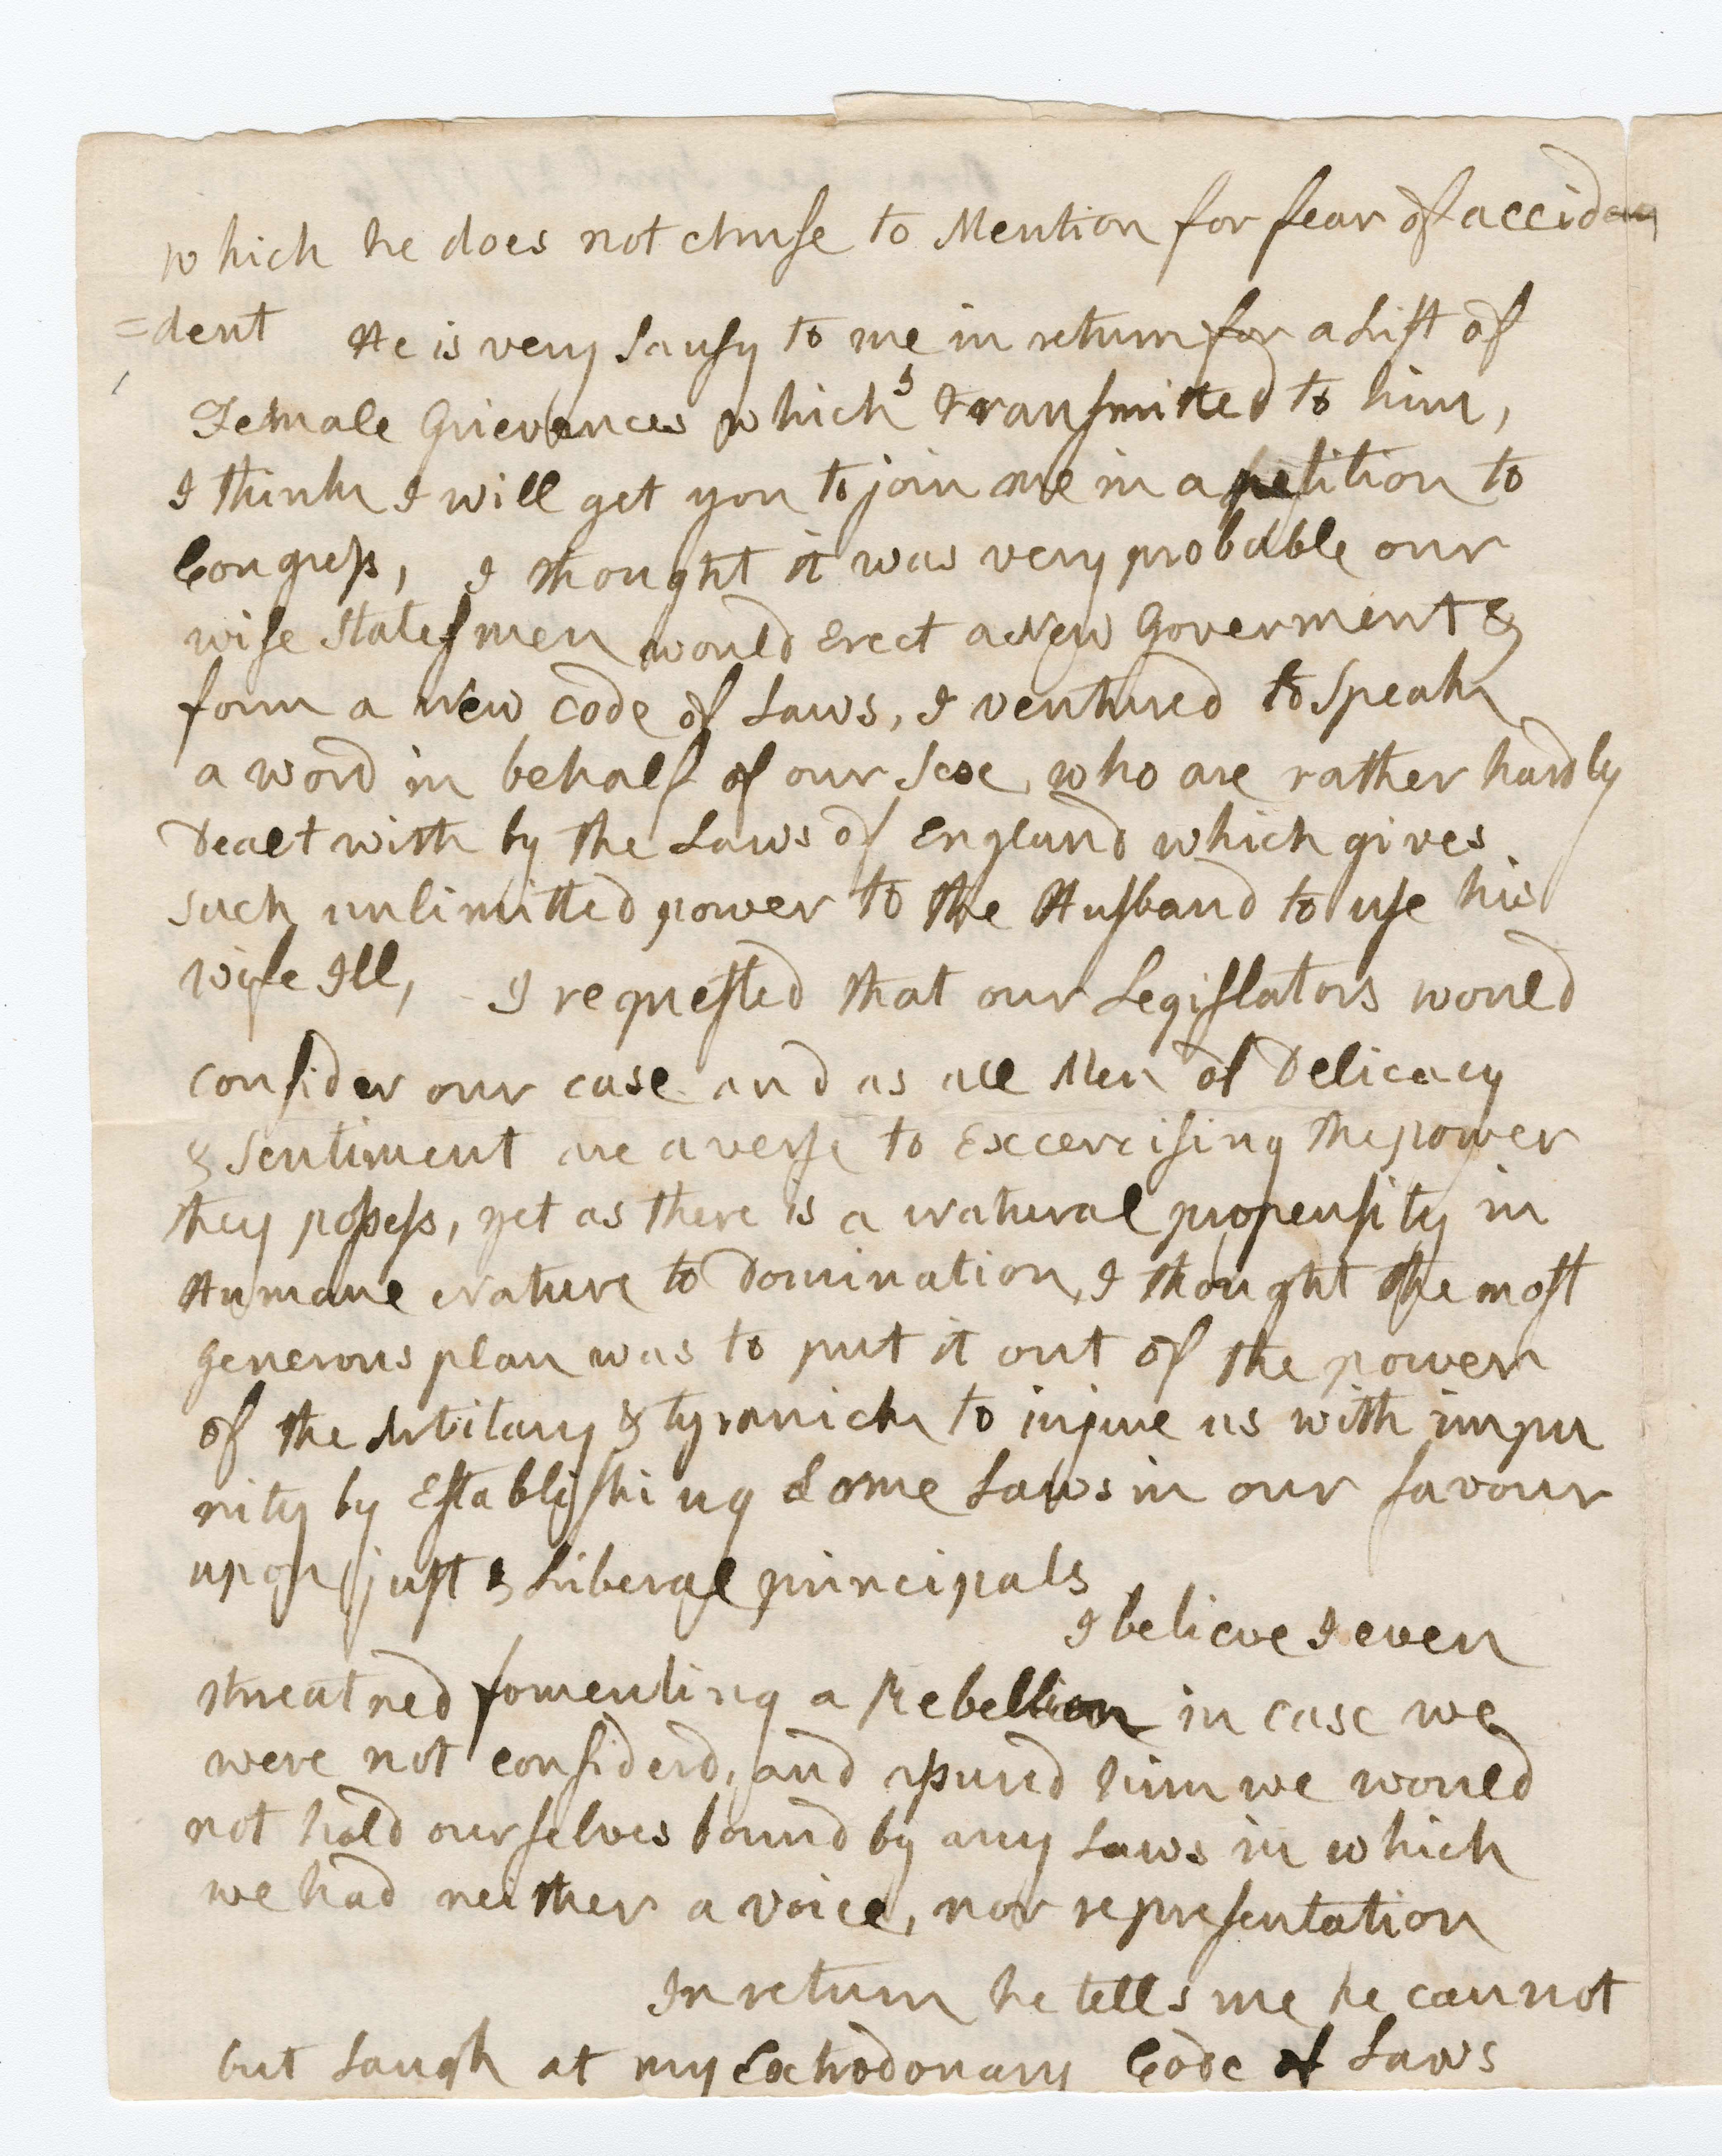 which he does not chuse to Mention for fear of acciden
=dent He is very sausy to me in return for a List of
Female Grievances which I transmitted to him,
I think I will get you to join me in a petition to
Congress, I thought it was very probable our
wise Statesmen would Erect a New Goverment &
form a New code of Laws, I ventured to Speak
a word in behalf of our Sex who are rather hardly
Dealt with by the Laws of England which gives
such unlimitted power to the Husband to use his
wife Ill, I requested that our Legislators would
consider our case and as all Men of Delicacy
& Sentiment are averse to Excercising the power
they possess, yet as there is a natural propensity in
Humane Nature to Domination, I thought the most
generous plan was to put it out of the power
of the Arbitary & tyranick to injure us with impu
nity by Establishing Some Laws in our favour
upon just & Liberal principals
I believe I even
threatned fomenting a Rebellion in case we
were not considerd, and assured him we would
not hold ourselves bound by any Laws in which
we had neither a voice, nor representation
In return he tells me he cannot
but Laugh at my Extrodonary Code of Laws